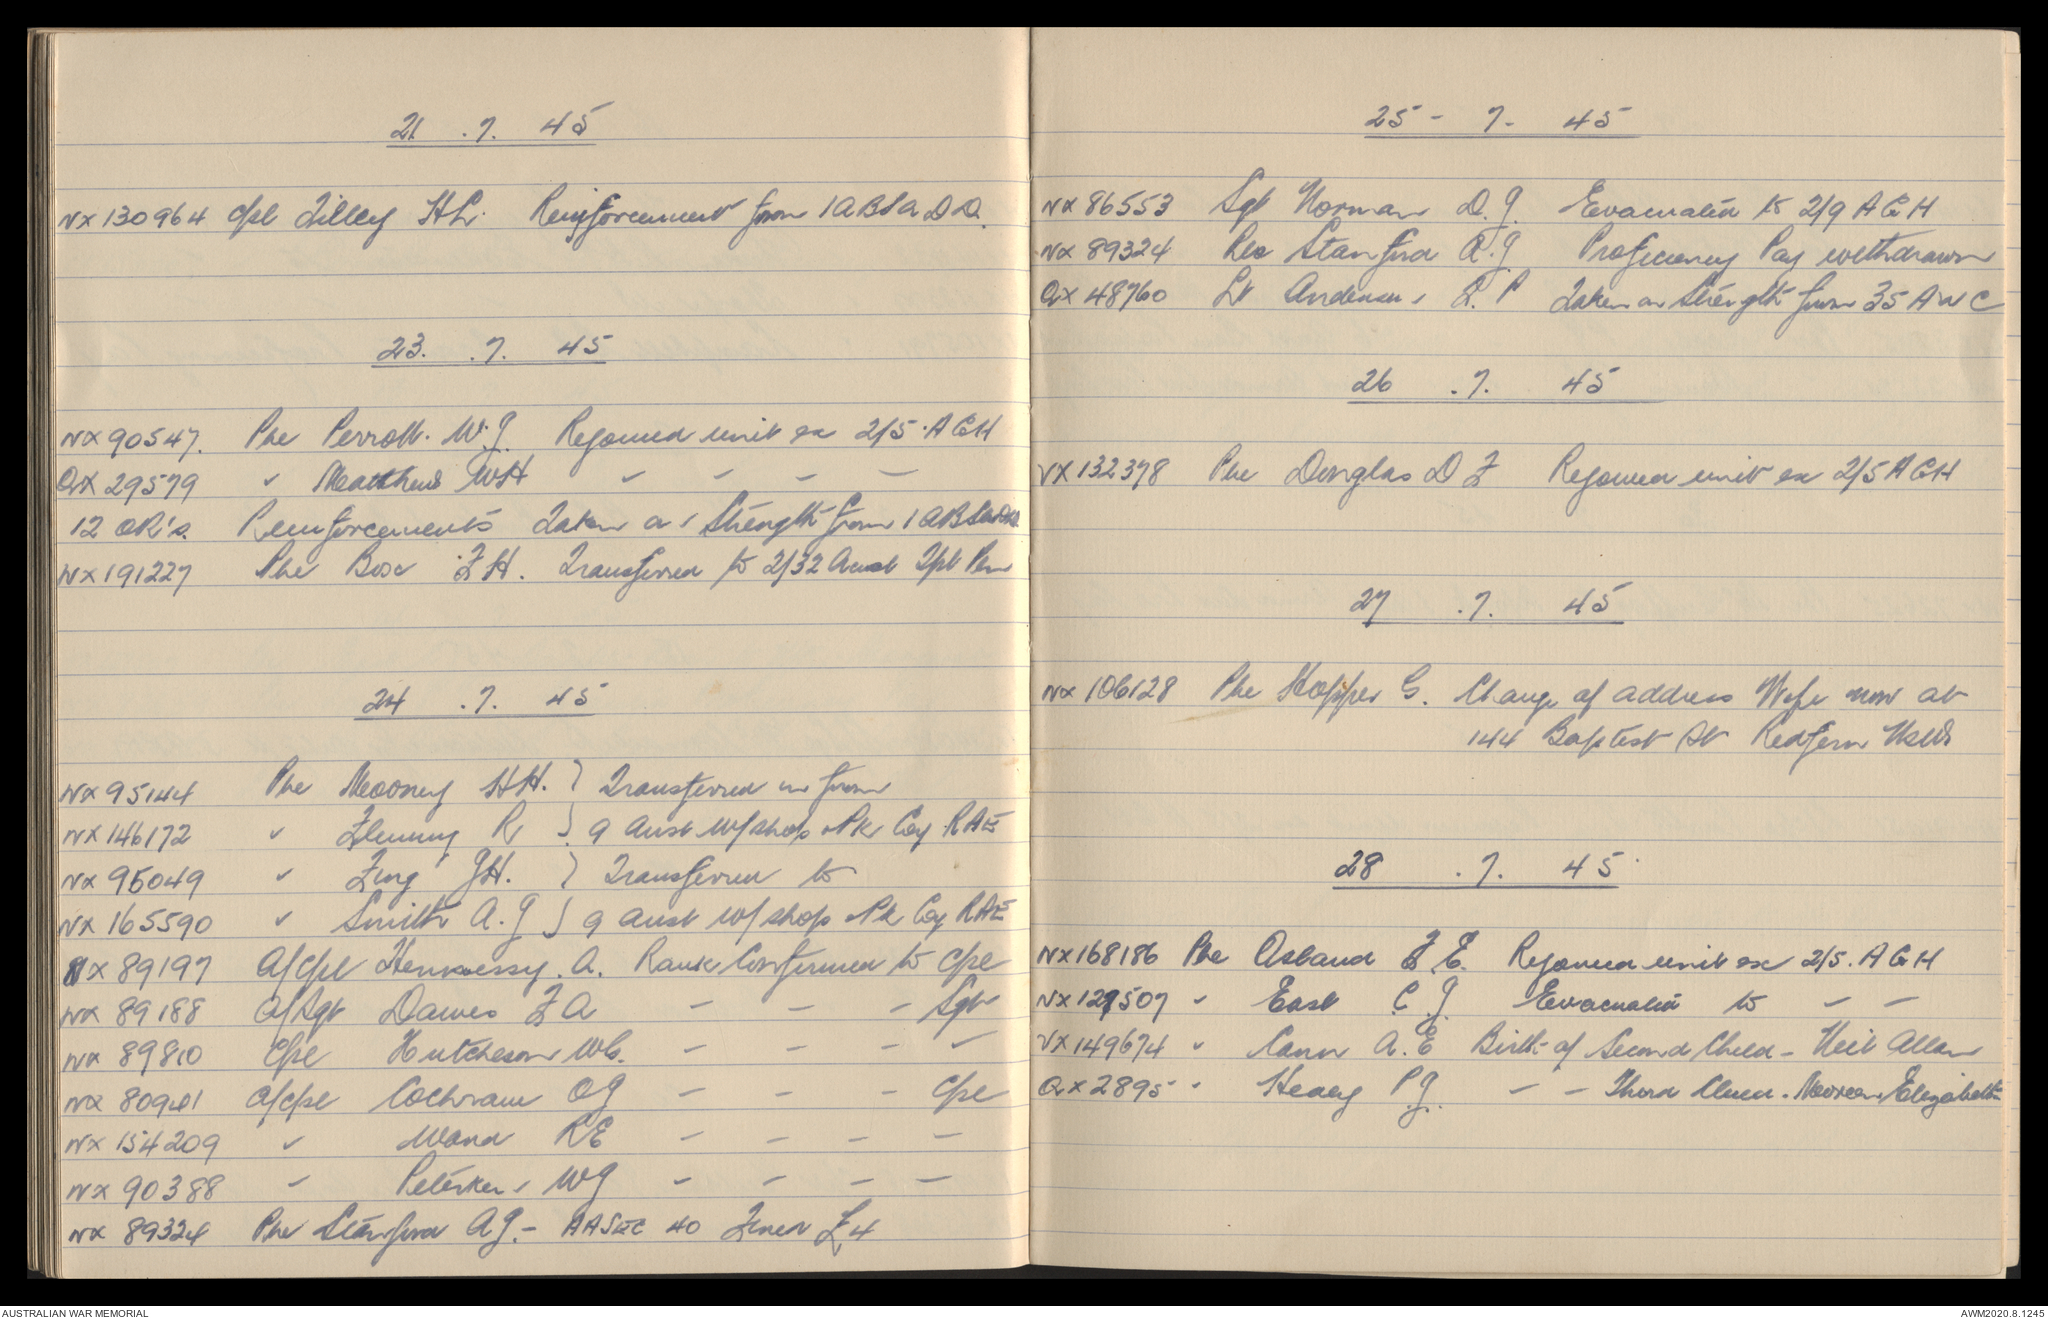 21 . 7. 45
NX 130964 Cpl Lilley H L. Reinforcement from 1 A B S a D D.
23. . 7. 45
NX 90547. Pte Perrott. W. J. Rejoined unit ex 2/5. A G H
QX 29579 " Matthews W H - - - -
12 OR's. Reinforcements taken on Strength from 1 A B S a D D.
NX 191227 Pte Box F H. Transferred to 2/32 Aust Tpt Pln
24 . 7. 45
NX 95144 Pte Mooney H H. } Transferred in from
NX 146172 " Flemming R } 9 Aust W/shop & Pk Coy RAE
NX 95049 " King J H. } Transferred to
NX 165590 " Smith A. J } 9 Aust W/shop & Pk Coy RAE
NX 89197 A/Cpl Hennessy. A. Rank Confirmed to Cpl
NX 89188 A/Sgt Dawes F A - - - Sgt
NX 89810 Cpl Hutcheson W C. - - - -
NX 80941 A/Cpl Cochrane O J - - - Cpl
NX 154209 " Ward R E - - - -
NX 90388 " W J - - - -
NX 89324 Pte Stanford A J. - A A S 40 Fined £4
25 - 7 - 45
NX 86553 Sgt Norman D. J. Evacuated to 2/9 A G H
NX 89324 Pte Stanford A. J Proficiency Pay withdrawn
QX 48760 Lt Anderson, P Taken on Strength from 35 A W C
26 . 7. 45
VX 132378 Pte Douglas D F Rejoined unit ex 2/5 A G H
27 . 7. 45
NX 106128 Pte Hopper G. Change of address Wife now at
144 Baptist St Redfern NSW
28 . 7. 45
NX 168186 Pte F. E. Rejoined unit ex 2/5. A G H
NX 127507 " East C. J. Evacuated to - -
VX 149674 " Cann A. E Birth of Second Child - Neil Allan
QX 2895 " Healy P J. - - Third Child - Noreen Elizabeth
AUSTRALIAN WAR MEMORIAL
AWM2020.8.1245